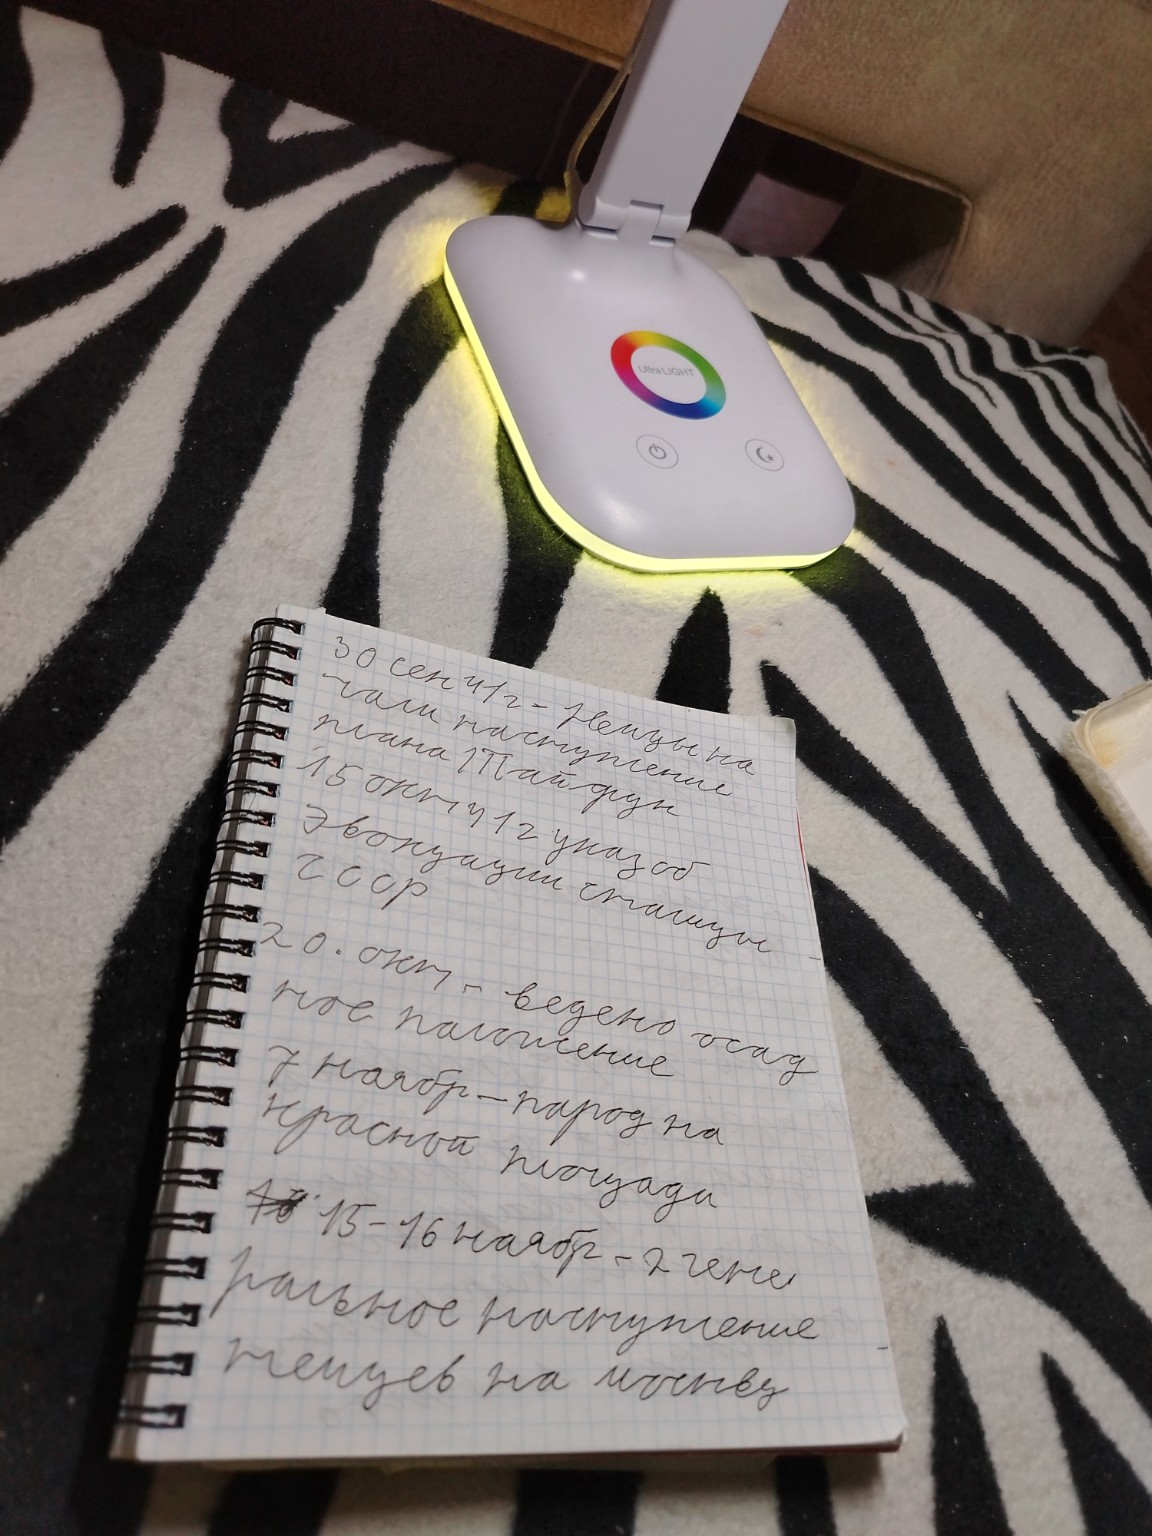 Ultra LIGHT
30 сен 41г - Немцы на
чали наступление
плана Тайфун
15 окт 41г указ об
Эвокуации сталицы
СССР
20. окт. - ведено осад
ное паложение
7 ноябр - парод на
красной площади
15-16 ноябр - 2 гене
ральное наступление
немцев на москву